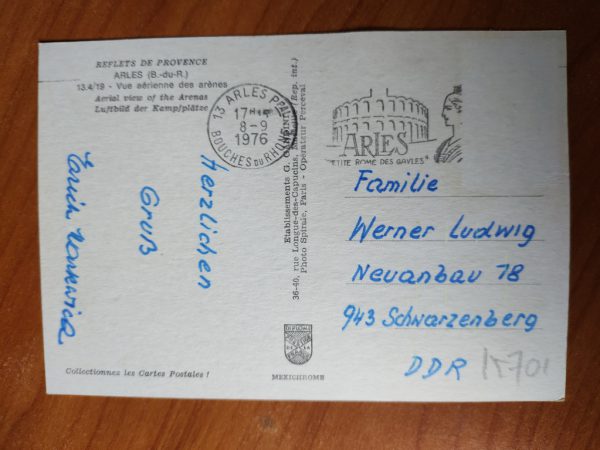 REFLETS DE PROVENCE
ARLES (B.-du-R.)
13.4/19 - Vue aérienne des arènes
Aerial view of the Arenas
Luftbild der Kampfplätze
13 ARLES
17H15
8-9
1976
BOUCHES DU RHONE
ARLES
PETITE ROME DES GAULES"
Herzlichen
Gruß
Erich
Etablissements G.
36-40, rue Longue-des-Capucins, (Rep. int.)
Photo Spirale, Paris - Operateur Perceval
Familie
Werner Ludwig
Neuanbau 18
943 Schwarzenberg
DDR
Collectionnez les Cartes Postales !
MEXICHROME